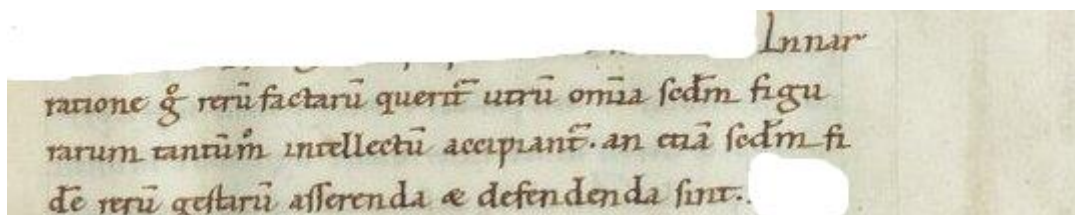 Innar
ratione gͦ rerū factarū querit᷑ utrū om̄ia scd̄m figu
rarum tantūmͦ intellectū accipiant᷑· an etiā scd̄m fi
dē rerū gestarū asserenda & defendenda sint·